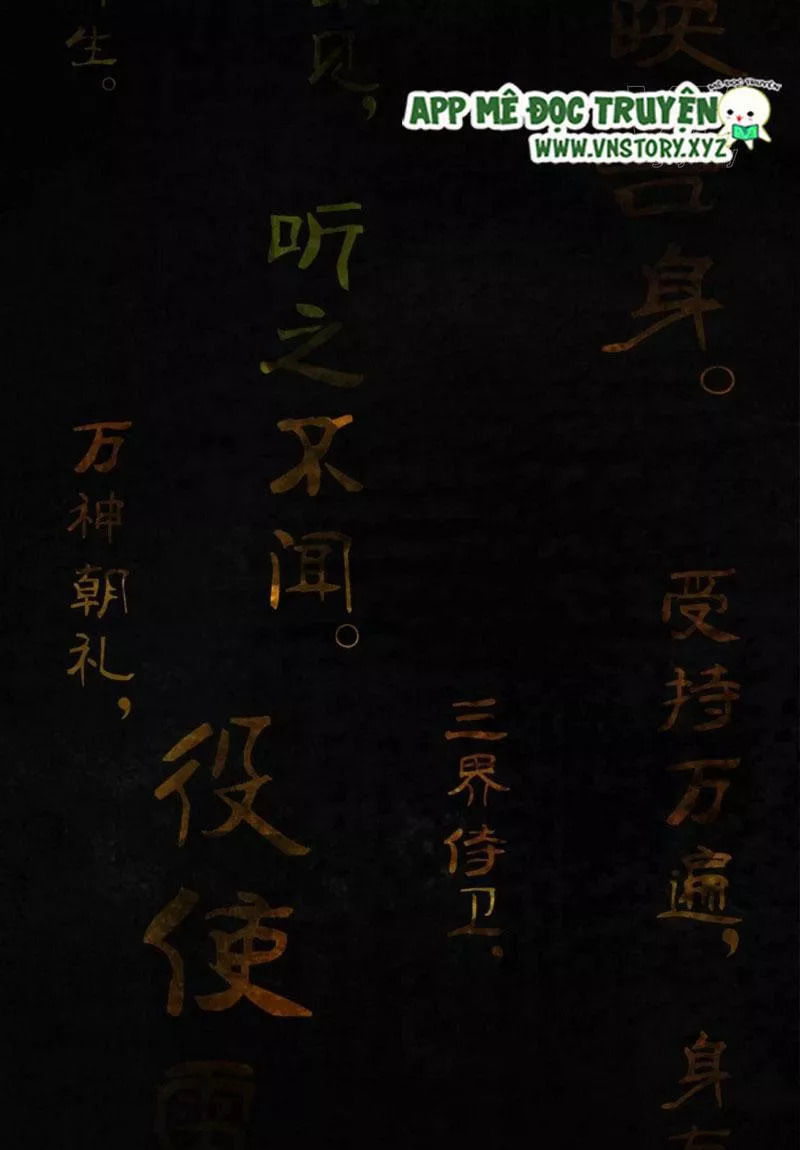 MÊ ĐỌC TRUYỆN
APP MÊ ĐỌC TRUYỆN
WWW.VNSTORY.XYZ
映吾身。
受持万遍，
身有
三界侍卫，
见，
听之不闻。
役使雷
生。
万神朝礼，